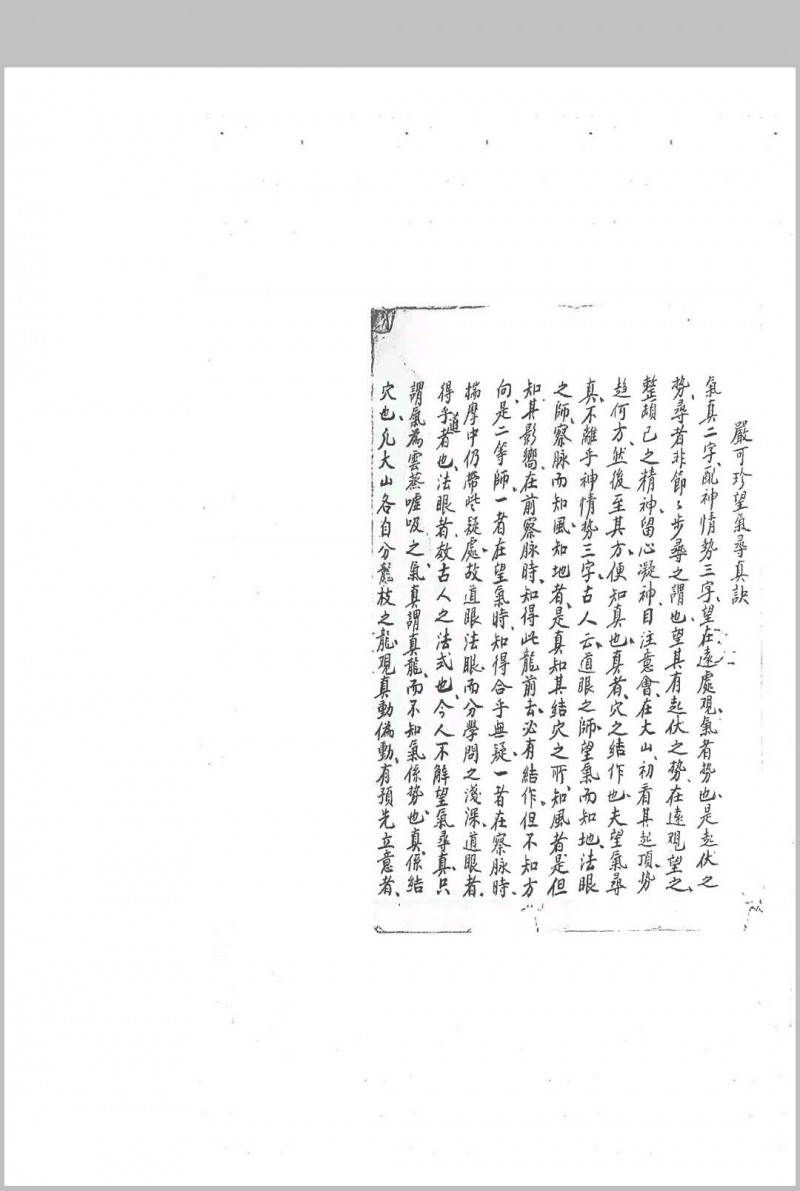 嚴可珍望氣尋真訣
氣真二字、配神情勢三字、望在遠處观、氣者勢也、是起伏之
勢、尋者非節〻步尋之謂也、望其有起伏之勢、在遠观望之、
整頓已之精神、留心凝神、目注意會、在大山、初看其起頂、勢
趋何方、然後至其方、便知真也、真者、穴之結作也、夫望氣尋
真、不離乎神情勢三字、古人云、道眼之師、望氣而知地、法眼
之師、察脉而知風、知地者、是真知其結穴之所、知風者是但
知其影響、在前察脉時、知得此龍前去、必有結作、但不知方
向、是二等師、一者在望氣時、知得合乎無疑、一者在察脉時、
揣摩中仍帶些疑處、故道眼法眼、而分學問之淺深、道眼者、
得乎道者也、法眼者、效古人之法式也、今人不解望氣尋真、只
謂氣為雲蒸噓吸之氣、真謂真龍、而不知氣係勢也、真係結
穴也、凡大山各自分龍枝之龍、观真動偽動、有預先立意者、